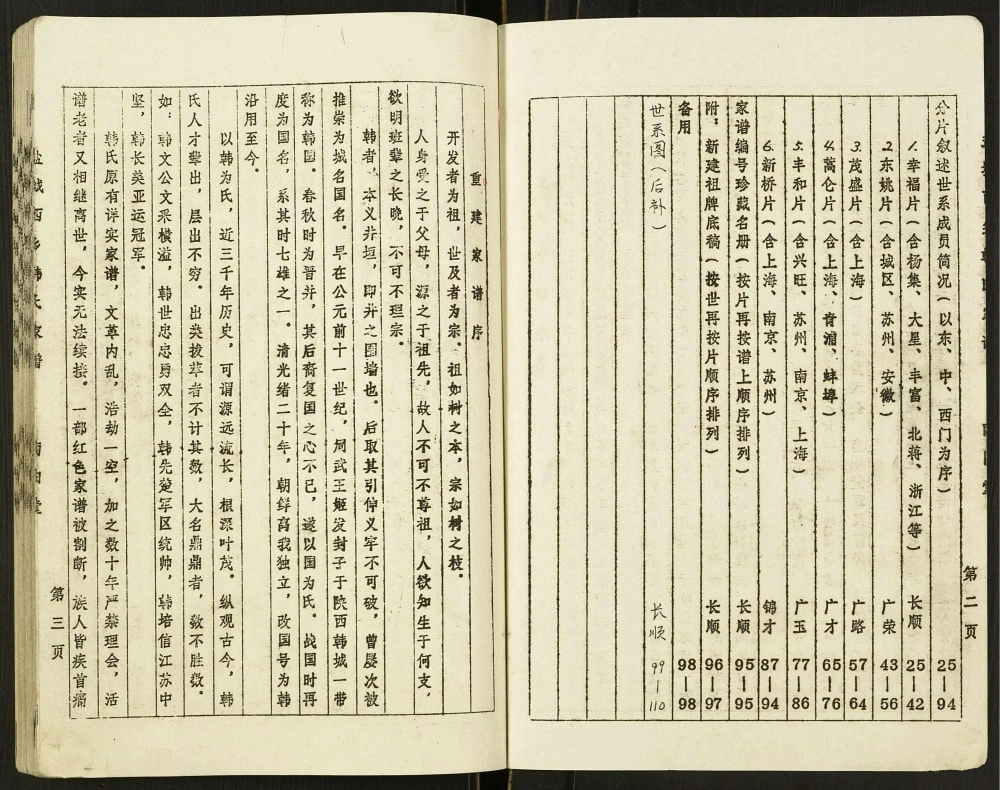 分片叙述世系成员简况(以东、中、西门为序) 25—94
1. 幸福片(含杨集、大星、丰富、北蒋、浙江等) 长顺 25—42
2. 东姚片(含城区、苏州、安徽) 广荣 43—56
3. 茂盛片(含上海) 广路 57—64
4. 蒿仑片(含上海、青浦、蚌埠) 广才 65—76
5. 丰和片(含兴旺、苏州、南京、上海) 广玉 77—86
6. 新桥片(含上海、南京、苏州) 锦才 87—94
家谱编号珍藏名册(按片再按谱上顺序排列) 长顺 95—95
附:新建祖牌底稿(按世再按片顺序排列) 长顺 96—97
备用 98—98
世系图(后补) 长顺 99—110
第二页
重建家谱序
开发者为祖,世及者为宗。祖如树之本,宗如树之枝。
人身受之于父母,源之于祖先,故人不可不尊祖,人欲知生于何支,
欲明班辈之长晚,不可不理宗。
韩者,本义井垣,即井之围墙也。后取其引伸义牢不可破,曾屡次被
推崇为城名国名。早在公元前十一世纪,周武王姬发封子于陕西韩城一带
称为韩国。春秋时为晋并,其后裔复国之心不已,遂以国为氏。战国时再
度为国名,系其时七雄之一。清光绪二十年,朝鲜离我独立,改国号为韩
沿用至今。
以韩为氏,近三千年历史,可谓源远流长,根深叶茂。纵观古今,韩
氏人才辈出,层出不穷。出类拔萃者不计其数,大名鼎鼎者,数不胜数。
如:韩文公文采横溢,韩世忠忠勇双全,韩先楚军区统帅,韩培信江苏中
坚,韩长美亚运冠军。
韩氏原有详实家谱,文革内乱,浩劫一空,加之数十年严禁理会,活
谱老者又相继离世,今实无法续接。一部红色家谱被割断,族人皆疾首痛
第三页
盐城西乡韩氏家谱 南阳堂